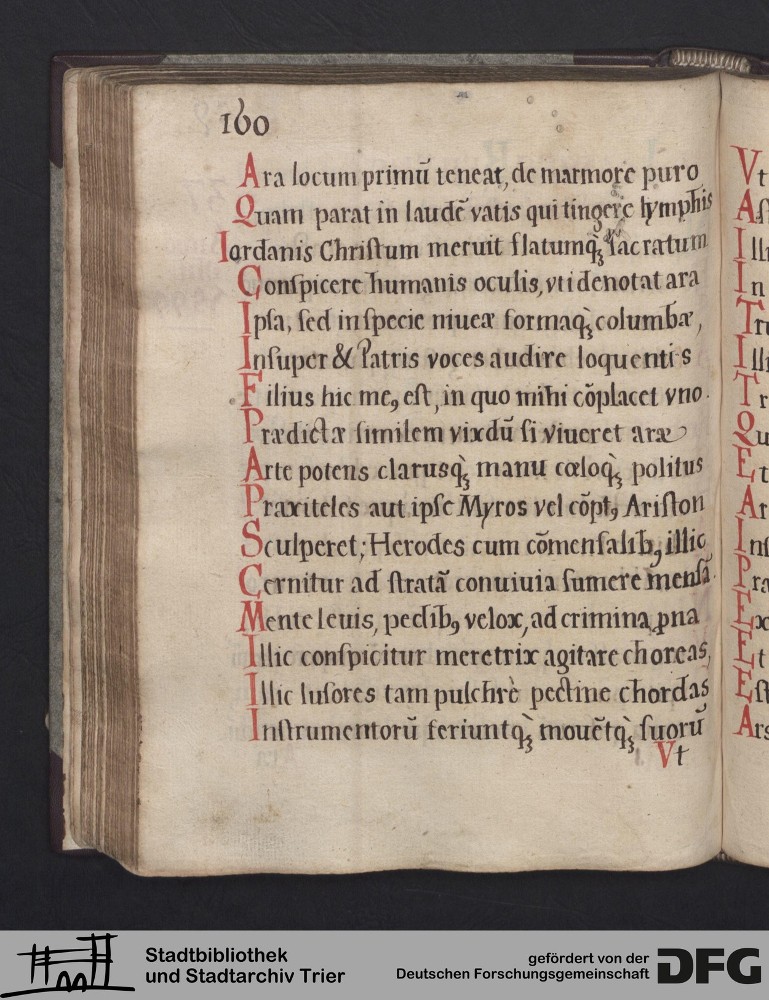 160
Ara locum primū teneat, de marmore puro
Quam parat in laudē vatis qui tingere lymphis
Iordanis Chriſtum meruit flatumq̀ꝫ ſacratum
Conſpicere humanis oculis, vti denotat ara
Ipſa, ſed in ſpecie niueæ formaq̀ꝫ columbæ,
Inſuper & Patris voces audire loquentis
Filius hic meꝰ eſt, in quo mihi cōplacet vno.
Prædictæ ſimilem vixdū ſi viueret aræ
Arte potens clarusq̀ꝫ manu cœloq̀ꝫ politus
Praxiteles aut ipſe Myros vel cōptꝰ Ariſton
Sculperet; Herodes cum cōmenſalibꝰ illic
Cernitur ad ſtratā conuiuia ſumere menſā.
Mente leuis, pedibꝰ velox, ad crimina ꝓna
Illic conſpicitur meretrix agitare choreas,
Illic luſores tam pulchrè pectine chordas
Inſtrumentorū feriuntq̀ꝫ mouētq̀ꝫ ſuorū
Vt
Vt
Aſ
Illi
In
Tru
Illi
Tr
Qu
Et
Ar
Inſ
Pra
Ex
Et
Eſt
Ars
Stadtbibliothek
und Stadtarchiv Trier
gefördert von der
Deutschen Forschungsgemeinschaft
DFG